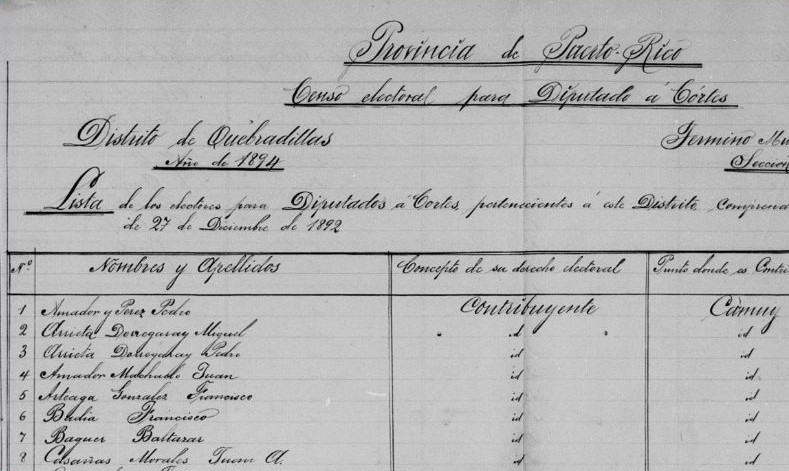 Provincia de Puerto-Rico
Censo electoral para Diputado á Córtes
Distrito de Quebradillas
Termino
Año de 1894
Seccion
Lista de los electores para Diputados á Cortes, pertenecientes á este Distrito
de 27 de Diciembre de 1892
Nº Nombres y Apellidos Concepto de su derecho electoral Punto donde es
1 Amador y Perez Pedro Contribuyente Camuy
2 Arrieta Dorregaray Miguel id id
3 Arrieta Dorregaray Pedro id id
4 Amador Machado Juan id id
5 Arteaga Gonzalez Francisco id id
6 Badia Francisco id id
7 Baquer Baltazar id id
8 Casañas Morales Juan A. id id